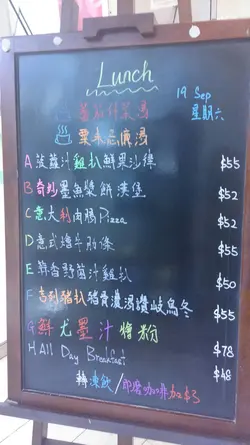 Lunch
19 Sep
星期六
蕃茄什菜湯
粟米忌廉湯
A 菠蘿汁雞扒鮮果沙律 $55
B 奇彩墨魚漿餅漢堡 $52
C 意大利肉腸Pizza $52
D 意式燴牛肋條 $55
E 野菌汁雞扒 $50
F 吉列豬扒豬骨濃湯讚岐烏冬 $55
G 鮮尤墨汁燴粉 $78
H. All Day Breakfast $48
轉凍飲/即磨咖啡加$3